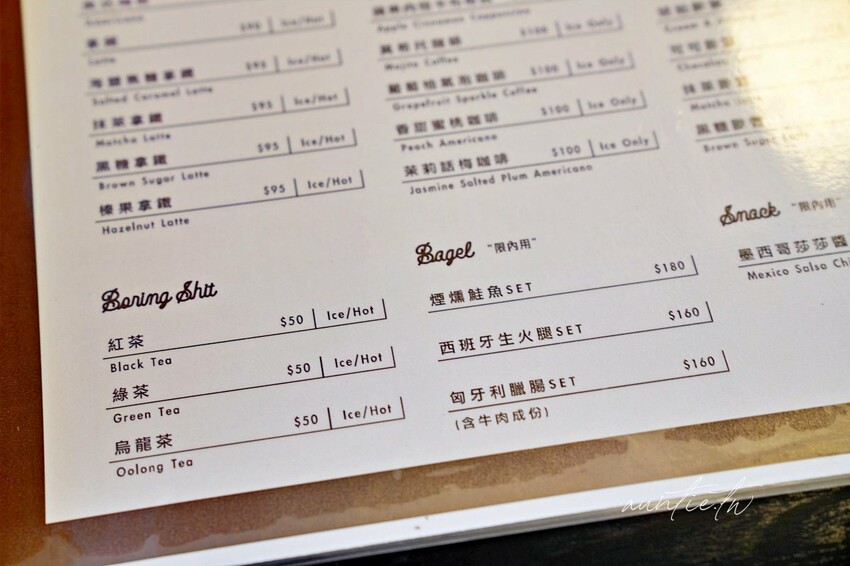 Americano
$95 | Ice/Hot
拿鐵
Latte
$95 | Ice/Hot
海鹽焦糖拿鐵
Salted Caramel Latte
$95 | Ice/Hot
抹茶拿鐵
Matcha Latte
$95 | Ice/Hot
黑糖拿鐵
Brown Sugar Latte
$95 | Ice/Hot
榛果拿鐵
Hazelnut Latte
Boring Shit
紅茶 $50 | Ice/Hot
Black Tea
綠茶 $50 | Ice/Hot
Green Tea
烏龍茶 $50 | Ice/Hot
Oolong Tea
Apple Cinnamon Cappuccino
$100 | Ice Only
Mojito Coffee
$100 | Ice Only
葡萄柚氣泡咖啡
Grapefruit Sparkle Coffee
$100 | Ice Only
香甜蜜桃咖啡
Peach Americano
$100 | Ice Only
茉莉話梅咖啡
Jasmine Salted Plum Americano
Bagel "限內用"
煙燻鮭魚SET $180
西班牙生火腿SET $160
匈牙利臘腸SET $160
(含牛肉成份)
抹茶
Matcha
黑糖
Brown Sugar
Snack "限內用"
墨西哥莎莎醬
Mexico Salsa Chi
auntie.tw